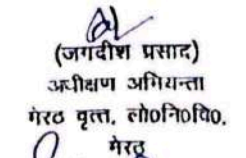 (जगदीश प्रसाद)
अधीक्षण अभियन्ता
मेरठ वृत्त, लो०नि०वि०,
मेरठ